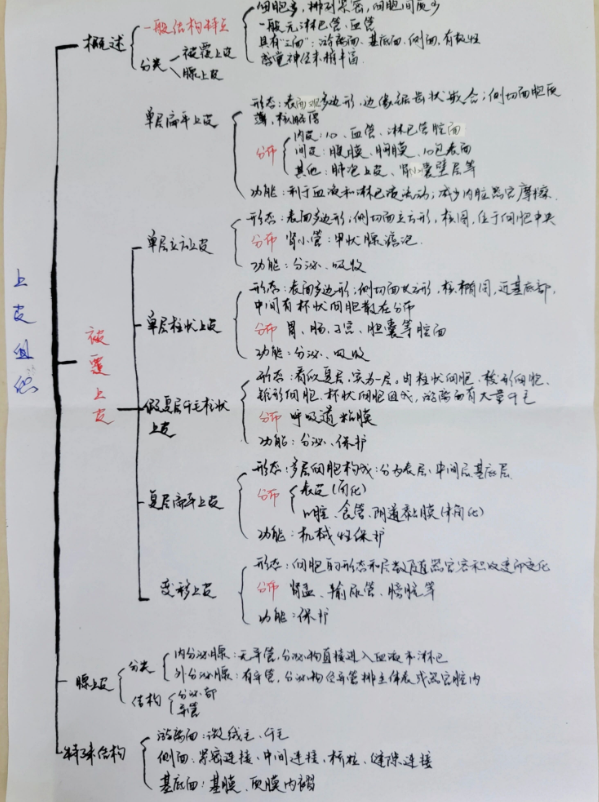 细胞多，排列紧密，细胞间质少
一般结构特点
一般无淋巴管、血管
具有"三面"：游离面、基底面、侧面，有极性
感觉神经末梢丰富
概述
分类
被覆上皮
腺上皮
形态：表面观多边形，边缘锯齿状嵌合；侧切面胞质
薄，核略厚
单层扁平上皮
内皮：心、血管、淋巴管腔面
分布
间皮：腹膜、胸膜、心包表面
其他：肺泡上皮、肾小囊壁层等
功能：利于血液和淋巴液流动；减少内脏器官摩擦.
形态：表面多边形；侧切面立方形，核圆，位于细胞中央
单层立方上皮
分布 肾小管：甲状腺滤泡.
功能：分泌、吸收
形态：表面多边形；侧切面长方形，核椭圆，近基底部，
中间有杯状细胞散在分布
单层柱状上皮
分布 胃、肠、子宫、胆囊等腔面
功能：分泌、吸收
上皮组织
被覆上皮
形态：看似复层，实为一层，由柱状细胞、梭形细胞、
锥形细胞、杯状细胞组成，游离面有大量纤毛
假复层纤毛柱状
上皮
分布 呼吸道粘膜
功能：分泌、保护
形态：多层细胞构成：分为表层、中间层基底层
复层扁平上皮
分布
表皮(角化)
口腔、食管、阴道黏膜(未角化)
功能：机械性保护
形态：细胞的形态和层数随器官容积改变而变化
变移上皮
分布 肾盂、输尿管、膀胱等
功能：保护
腺上皮
分类
内分泌腺：无导管，分泌物直接进入血液或淋巴
外分泌腺：有导管，分泌物经导管排至体表或器官腔内
结构
分泌部
导管
特殊结构
游离面：微绒毛、纤毛
侧面：紧密连接、中间连接、桥粒、缝隙连接
基底面：基膜、质膜内褶